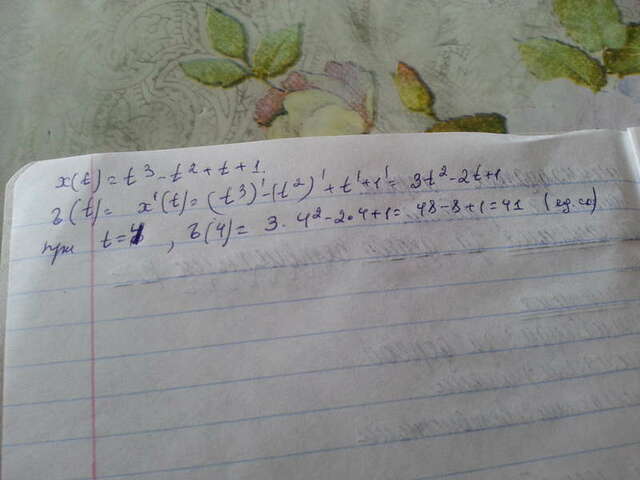 x(t)=t³-t²+t+1.
v(t)= x'(t)=(t³)'-(t²)'+t'+1'= 3t²-2t+1
при t=4, v(4)= 3·4²-2·4+1= 48-8+1=41